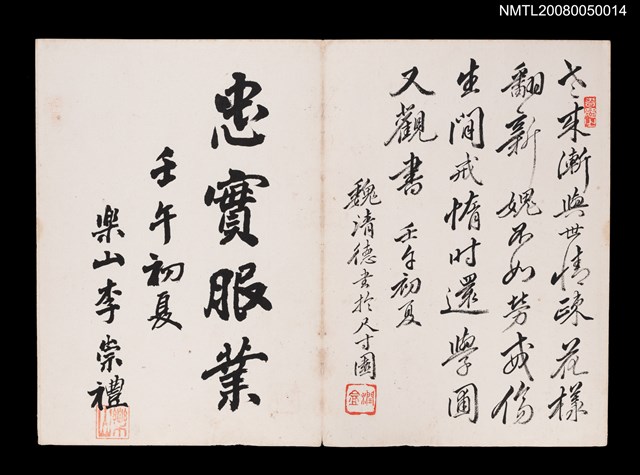 NMTL20080050014
老來漸與世情疎花樣
翻新媿不如勞或傷
生閒戒惰时還學圃
又觀書 壬午初夏
魏清德書於尺寸園
忠實服業
壬午初夏
樂山李崇禮